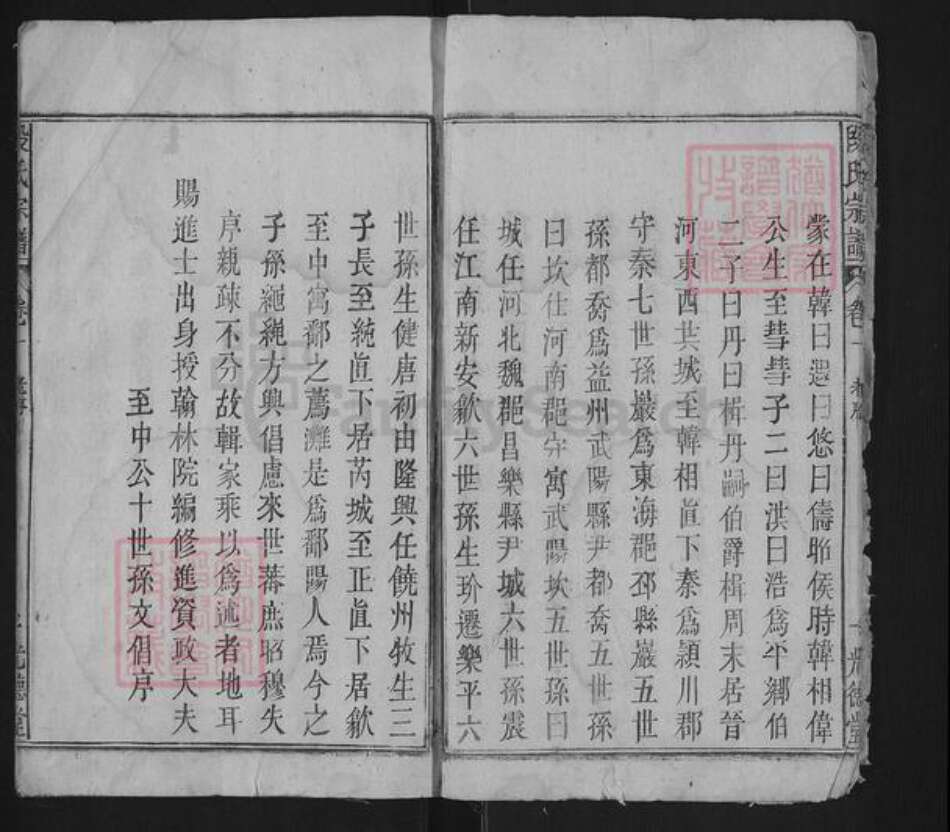 蒙在韓曰遐曰悠曰儔貽侯時韓相偉
公生至彗彗子二曰淇曰浩爲平鄉伯
二子曰丹曰楫丹嗣伯爵楫周末居晉
河東西其城至韓相直下秦爲潁川郡
守秦七世孫巖爲東海郡邳縣巖五世
孫都喬爲益州武陽縣尹都喬五世孫
曰坎仕河南郡守寓武陽坎五世孫曰
城任河北魏郡昌樂縣尹城六世孫震
任江南新安歙六世孫生玠遷樂平六
世孫生健唐初由隆興任饒州牧生三
子長至純直下居芮城至正直下居歙
至中寓鄱之薦灘是爲鄱陽人焉今之
子孫繩繩方興倡慮來世蕃庶昭穆失
序親疎不分故輯家乘以爲述者地耳
賜進士出身授翰林院編修進資政大夫
至中公十世孫文倡序
氏宗譜
卷一
光德堂
FamilySearch